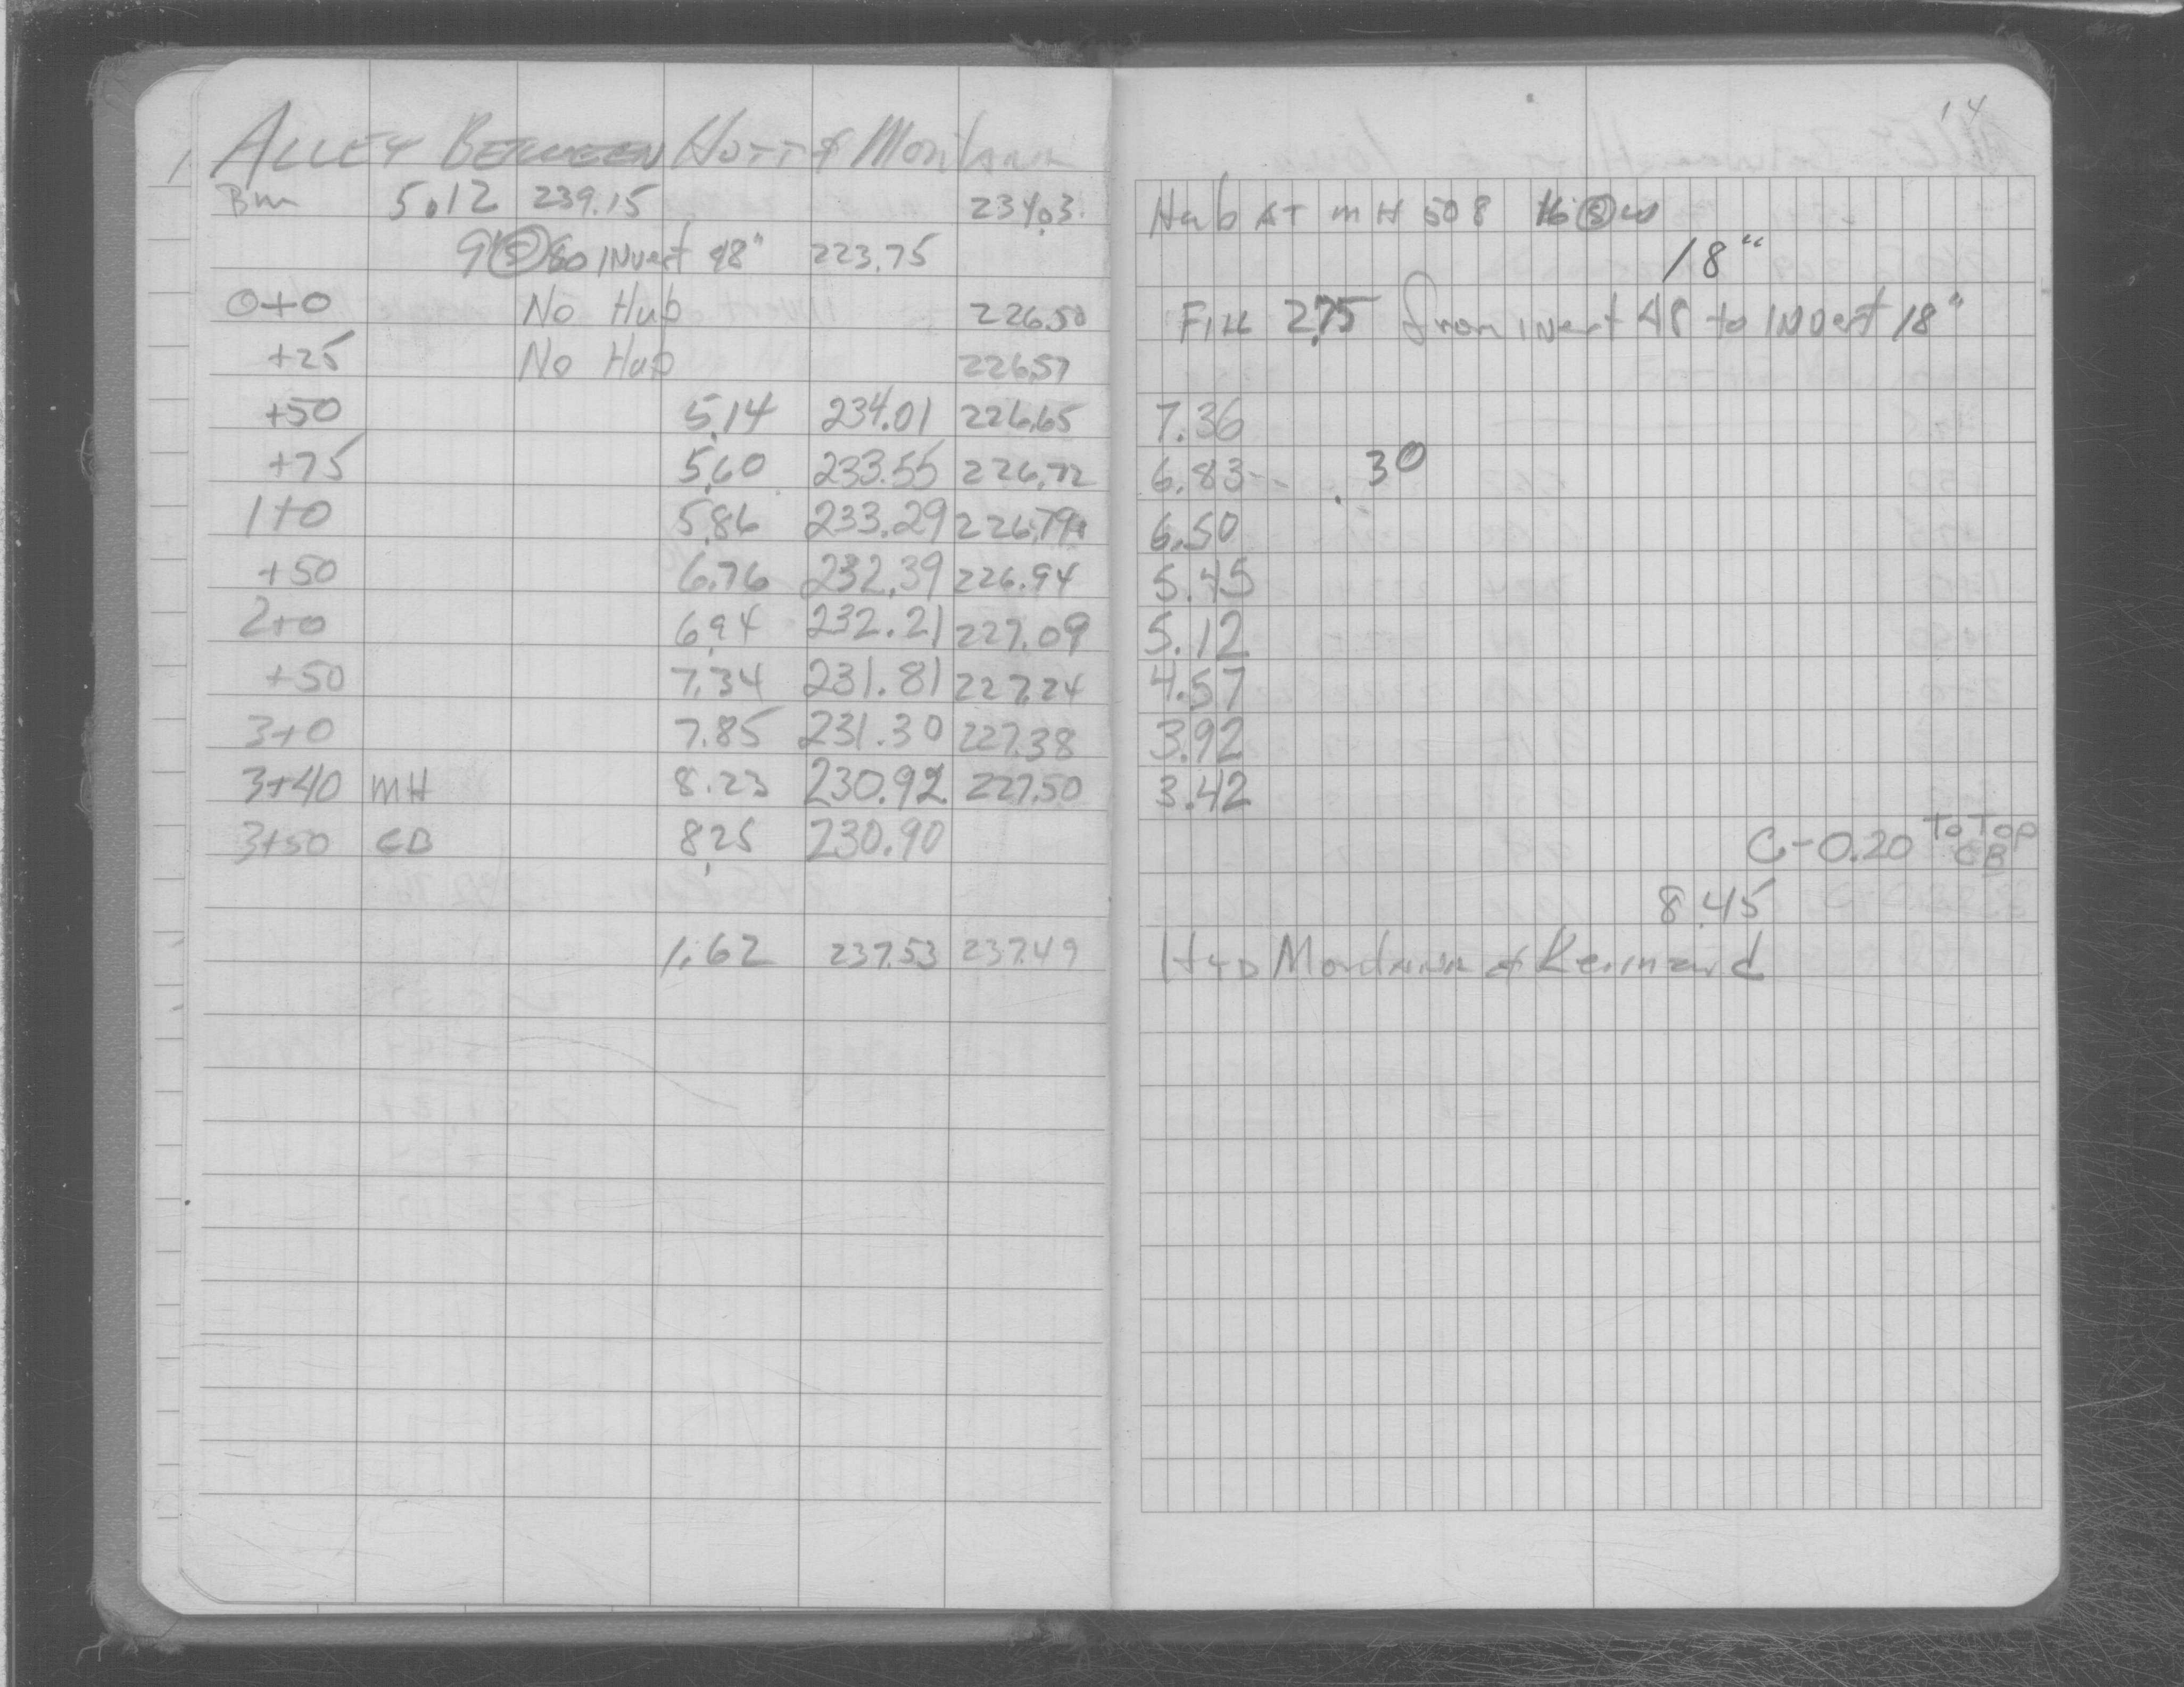 14
ALLEY BETWEEN HOTT & Montana
Bm 5.12 239.15 234.03 Hub AT MH 508
9' 80 INvert 48" 223.75 18"
0+0 No Hub 226.50 FILL 2.75 from INvert 48 to INvert 18"
+25 No Hub 226.57
+50 5.14 234.01 226.65 7.36
+75 5.60 233.55 226.72 6.83 .30
1+0 5.86 233.29 226.79 6.50
+50 6.76 232.39 226.94 5.45
2+0 6.94 232.21 227.09 5.12
+50 7.34 231.81 227.24 4.57
3+0 7.85 231.30 227.38 3.92
3+40 MH 8.23 230.92 227.50 3.42
3+50 CB 8.25 230.90 C-0.20 To Top CB
8.45
1.62 237.53 237.49 Hyd Montana & Kennard